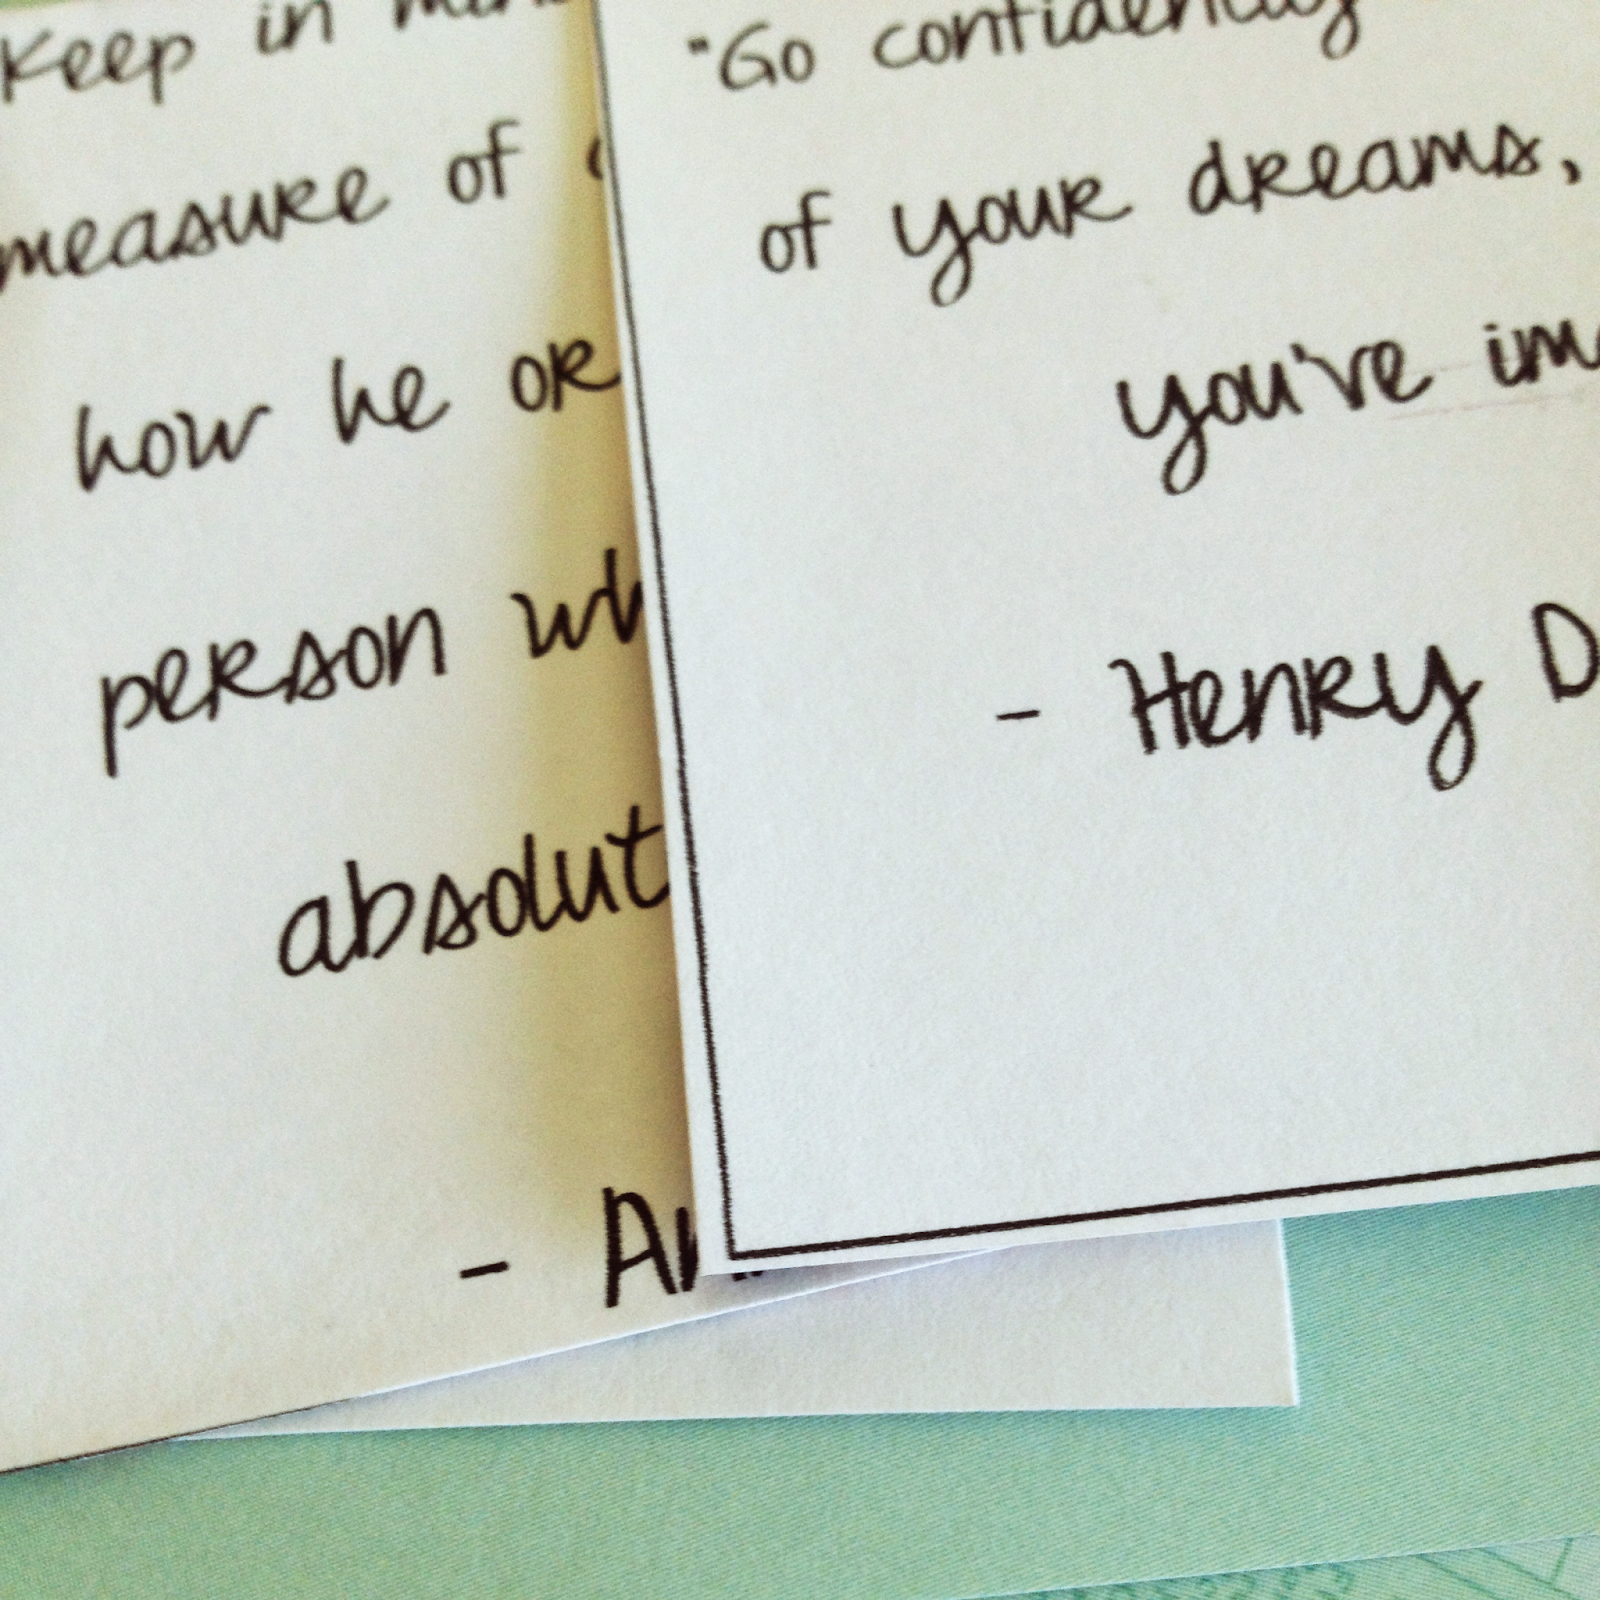 Keep in
measure of
how he or
person
absolut
- An
"Go confidently
of your dreams,
you've
- Henry D